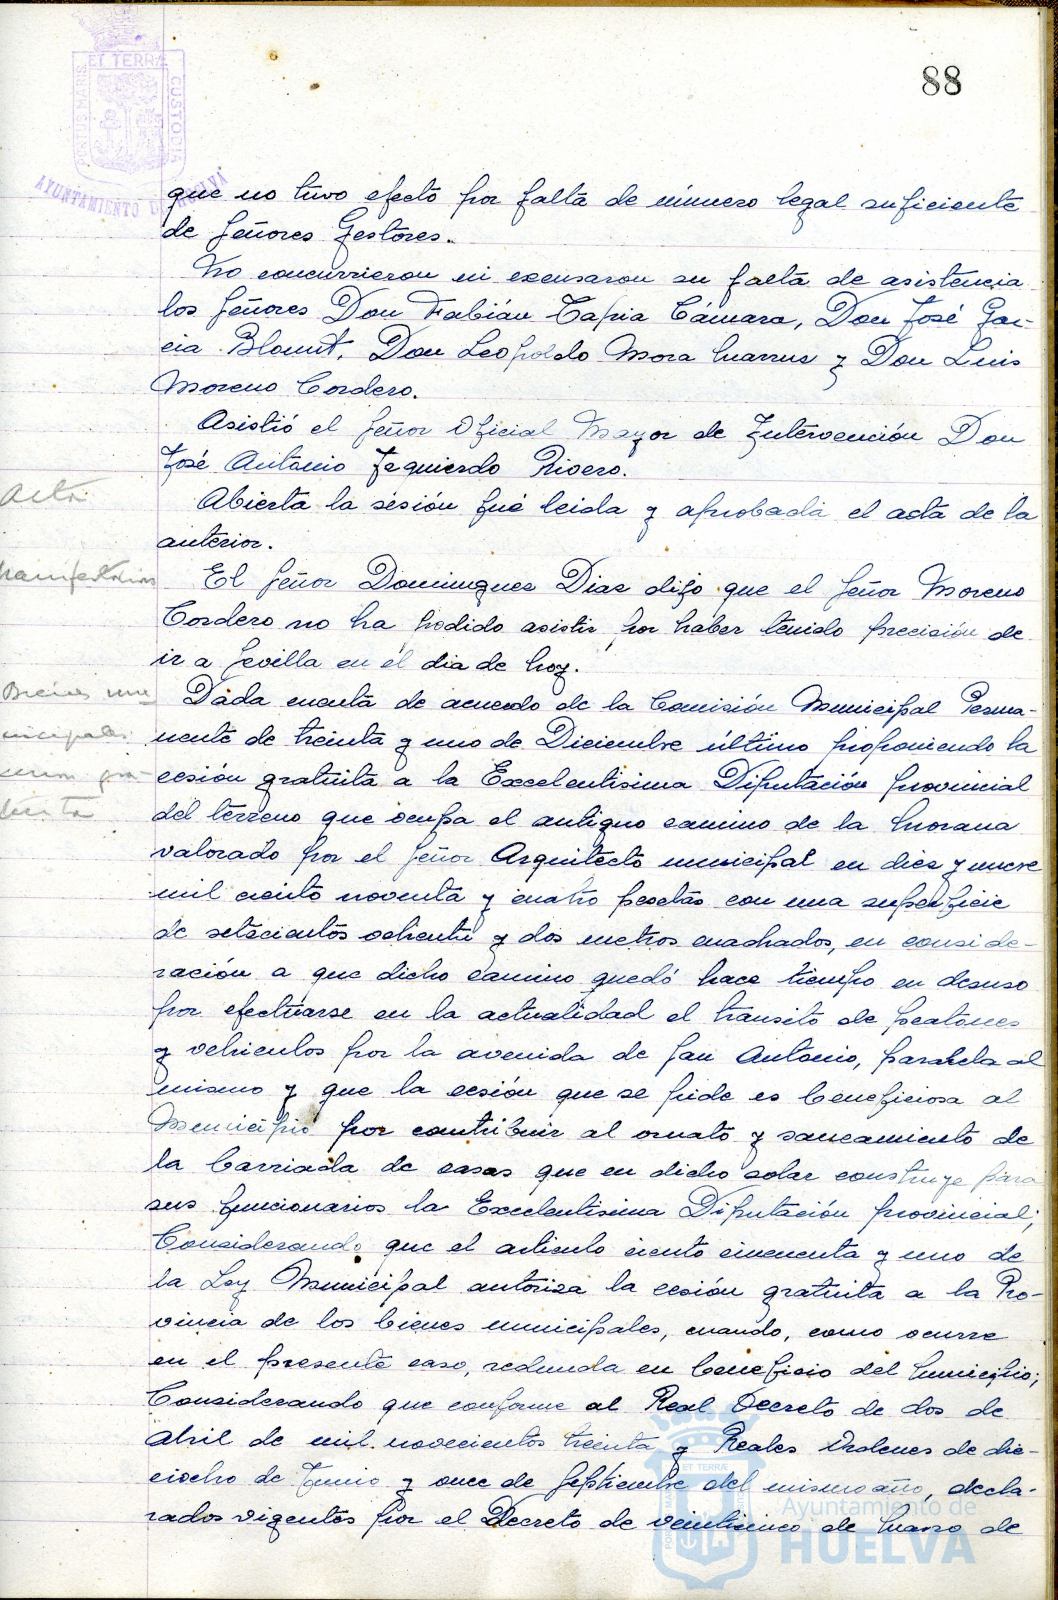 88
PORTUS MARIS ET TERRÆ CUSTODIA
AYUNTAMIENTO DE HUELVA
que no tuvo efecto por falta de número legal suficiente
de Señores Gestores.
No concurrieron ni excusaron su falta de asistencia
los Señores Don Fabián Tapia Cámara, Don José Gar-
cia Blount, Don Leopoldo Mora y Don Luis
Moreno Cordero.
Asistió el Señor Oficial Mayor de Intervención Don
José Antonio Izquierdo Rivero.
Acta
Abierta la sesión fué leida y aprobada el acta de la
anterior.
Manifestaciones
El Señor Dominguez Diaz dijo que el Señor Moreno
Cordero no ha podido asistir por haber tenido precisión de
ir a Sevilla en el dia de hoy.
Bienes mu
nicipales
cesion gra-
tuita
Dada cuenta de acuerdo de la Comisión Municipal Perma-
nente de treinta y uno de Diciembre último proponiendo la
cesión gratuita a la Excelentisima Diputación provincial
del terreno que ocupa el antiguo camino de la Morana
valorado por el Señor Arquitecto municipal en diez y nueve
mil ciento noventa y cuatro pesetas con una superficie
de setecientos ochenta y dos metros cuadrados, en conside-
ración a que dicho camino quedó hace tiempo en desuso
por efectuarse en la actualidad el transito de peatones
y vehiculos por la avenida de San Antonio, paralela al
mismo y que la cesión que se pide es beneficiosa al
Municipio por contribuir al ornato y saneamiento de
la barriada de casas que en dicho solar construye para
sus funcionarios la Excelentisima Diputación provincial;
Considerando que el articulo ciento cincuenta y uno de
la Ley Municipal autoriza la cesión gratuita a la Pro-
vincia de los bienes municipales, cuando, como ocurre
en el presente caso, redunda en beneficio del Municipio;
Considerando que conforme al Real Decreto de dos de
Abril de mil novecientos treinta y Reales Ordenes de die-
ciocho de Junio y once de Septiembre del mismo año, decla-
rados vigentes por el Decreto de veinticinco de Marzo de
Ayuntamiento de
HUELVA